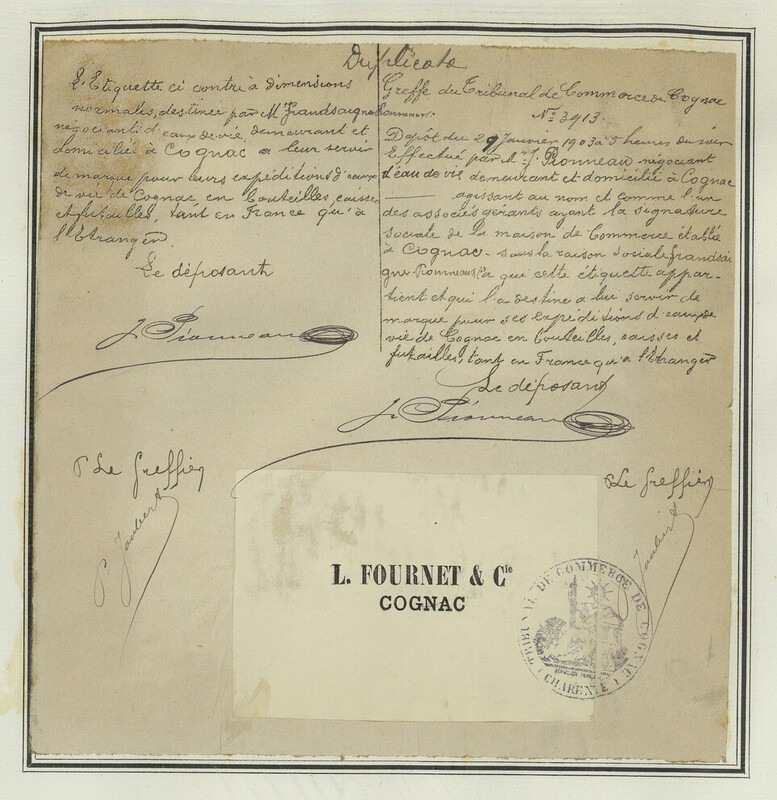 Duplicata
L'Etiquette ci contre à dimensions
normales, destinée par M Frandsaigne Pionneau
négociants d'eaux de vie, demeurant et
domicilié à Cognac a leur servir
de marque pour leurs expéditions d'eaux
de vie de Cognac, en bouteilles, caisses
et futailles, tant en France qu'à
l'Etranger.
Le déposant
J. Pionneau
P Le Greffier
P. Jaubert
Greffe du Tribunal de Commerce de Cognac
No. 3913.
Dépôt du 29 Janvier 1903 à 5 heures du soir
Effectué par M. J. Pionneau négociant
d'eau de vie demeurant et domicilié à Cognac
agissant au nom et comme l'un
des associés gérants ayant la signature
sociale de la maison de Commerce établie
à Cognac sous la raison sociale frandsai
gne-Pionneau & Ca qui cette étiquette appar-
tient et qui l'a destine a lui servir de
marque pour ses expéditions d'eaux de
vie de Cognac en bouteilles, caisses et
futailles, tant en France qu'à l'Etranger
Le déposant
J. Pionneau
P Le Greffier
Jaubert
L. FOURNET & Cie
COGNAC
TRIBUNAL DE COMMERCE DE COGNAC
(CHARENTE)